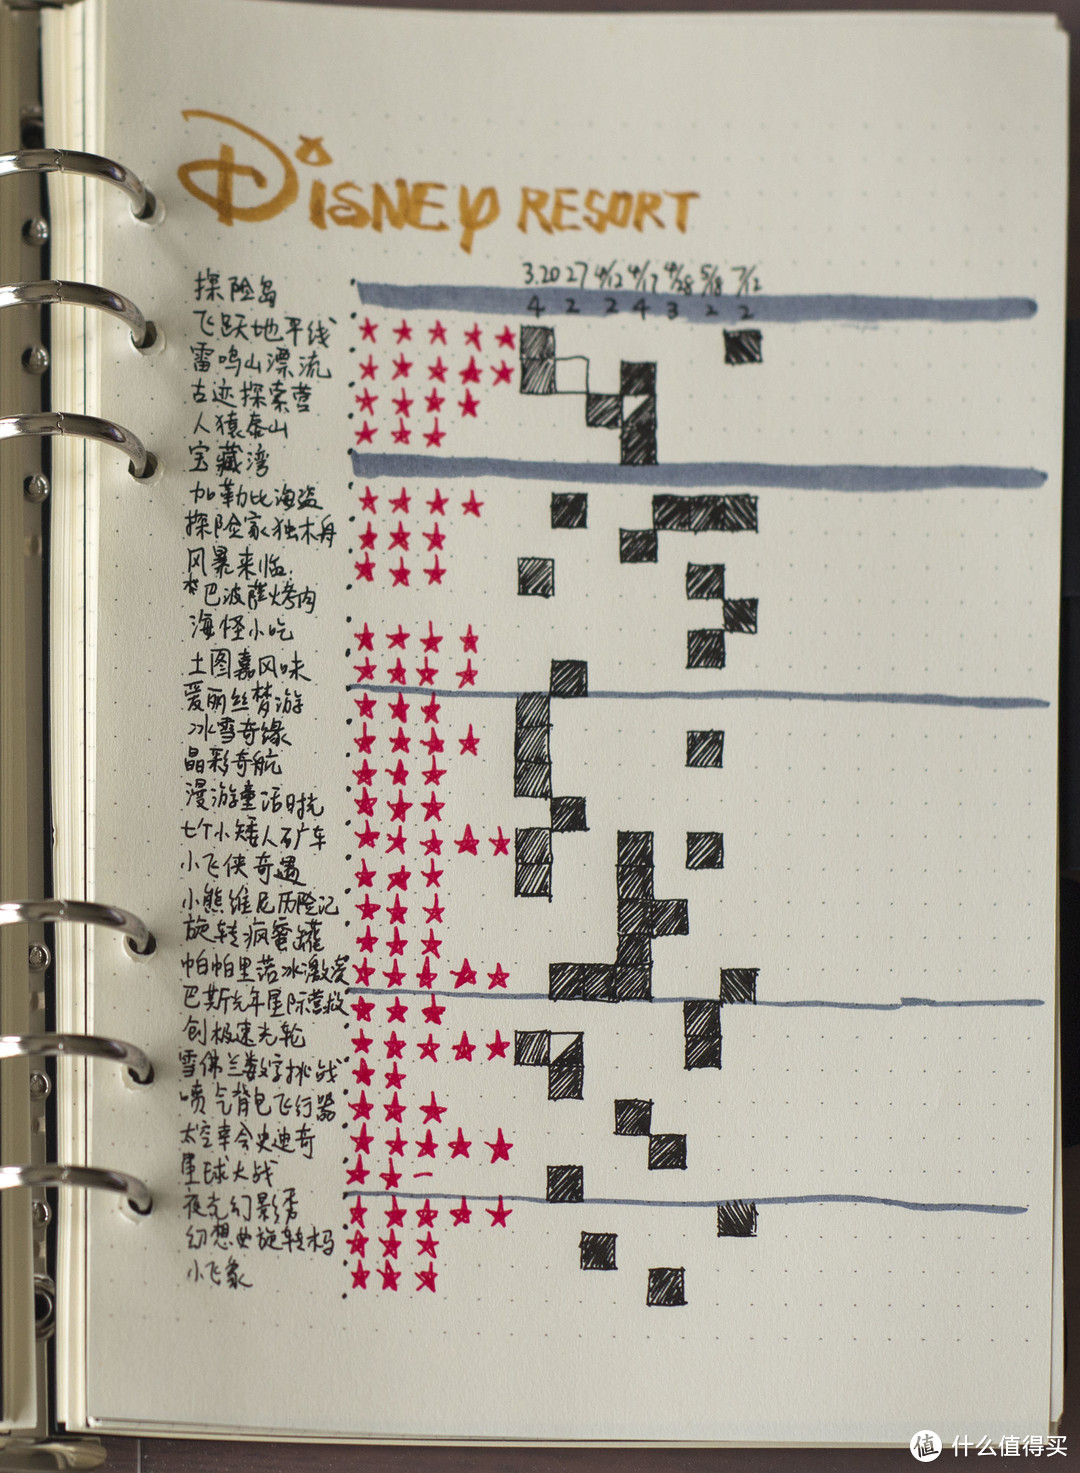 DISNEY RESORT
3.20 27 4/12 4/17 4/28 5/18 7/12
4 2 2 4 3 2 2
探险岛
飞跃地平线
雷鸣山漂流
古迹探索营
人猿泰山
宝藏湾
加勒比海盗
探险家独木舟
风暴来临
巴波萨烤肉
海怪小吃
土图嘉风味
爱丽丝梦游
冰雪奇缘
晶彩奇航
漫游童话时光
七个小矮人矿车
小飞侠奇遇
小熊维尼历险记
旋转疯蜜罐
帕帕里诺冰激凌
巴斯光年星际营救
创极速光轮
雪佛兰数字挑战
喷气背包飞行器
太空幸会史迪奇
星球大战
夜光幻影秀
幻想曲旋转木马
小飞象
值 什么值得买